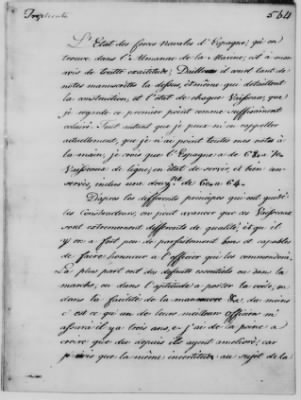 Triplicata 564
L'Etat des forces Navales d'Espagne, qu'on
trouve dans l'Almanac de la Marine, est à mon
avis de toute exactitude; D'ailleurs il avait tant de
notes manuscrites la dessus, et même qui détaillent
la construction, et l'état de chaque Vaisseau, que
je regarde ce premier point comme suffisamment
éclairé. Tout autant que je peux m'en rappeller
actuellement, que je n'ai point toutes mes notes à
la main, je vois que l'Espagne a de
Vaisseaux de ligne, en état de servir, et bien con-
servés, inclus une de 60 a 64.
D'après les differents principes qui ont guidé
les Constructeurs, on peut avancer que ces Vaisseaux
sont extremement differents de qualité, et qu'il
y en a fort peu de parfaitement bons et capables
de faire honneur à l'officier qui les commandera.
La plus part ont des defauts essentiels ou dans la
marche, ou dans l'aptitude a porter la voile, ou
dans la facilité de la manœuvre &a, du moins
c'est ce qu'un de leurs meilleurs officiers m'
assura il y a trois ans, et j'ai de la peine a
croire que depuis ils ayent amelioré; car
je vois que la même incertitude au sujet de la